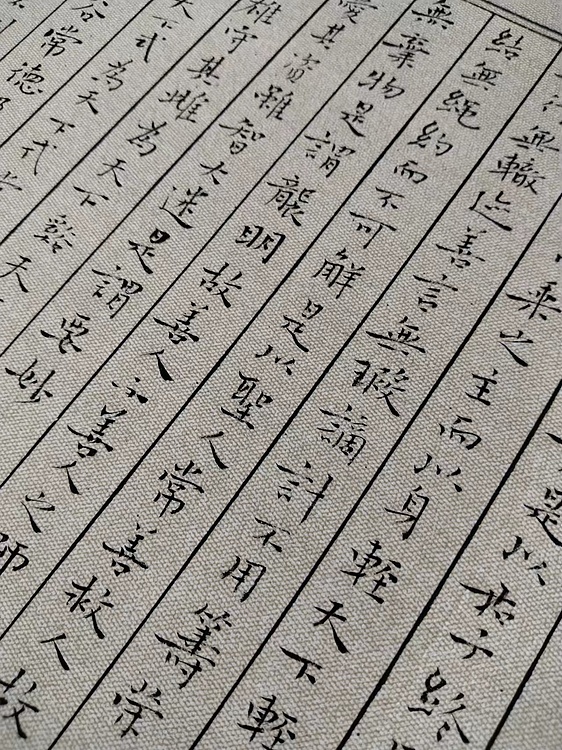 是以君子終
乘之主而以身輕天下輕
行無轍迹善言無瑕謫計不用籌策
結無繩約而不可解是以聖人常善救人故
無棄物是謂襲明故善人不善人之師
愛其資雖智大迷是謂要妙
雄守其雌為天下谿天
天下式為天下式常
谷常德